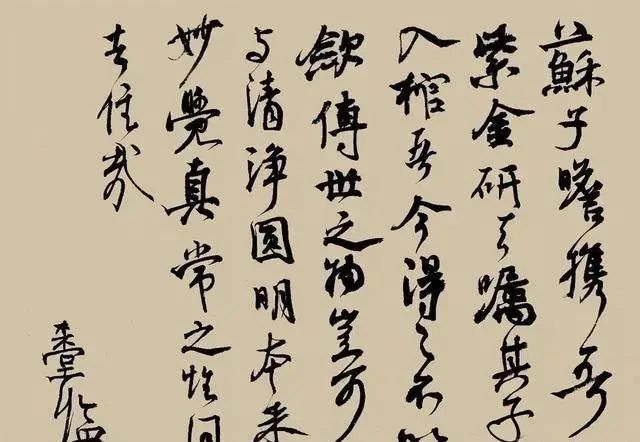 蘇子瞻携吾
紫金研去嘱其子
入棺吾今得之不以
歛傳世之物豈可
与清浄圆明本来
妙覺真常之性同
去住哉